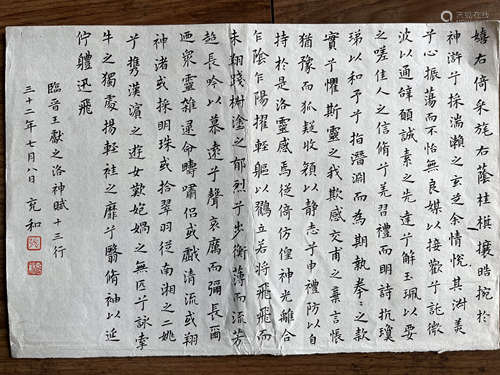 嬉右倚采旄右蔭桂旗攘皓捥於
神滸兮採湍瀨之玄芝余情悅其淑美
兮心振蕩而不怡無良媒以接歡兮託微
波以通辝願誠素之先達兮解玉珮以要
之嗟佳人之信脩兮羌習禮而明詩抗瓊
珶以和予兮指潛淵而為期執拳拳之款
實兮懼斯靈之我欺感交甫之棄言悵
猶豫而狐疑收顏以静志兮申禮防以自
持於是洛靈感焉徙倚仿偟神光離合
乍陰乍陽擢輕軀以鶴立若將飛飛而
未翔踐椒塗之郁烈兮步衡薄而流芳
超長吟以慕遠兮聲哀厲而彌長爾
迺眾靈雜遝命疇嘯侶或戲清流或翔
神渚或採明珠或拾翠羽從南湘之二姚
兮攜漢濱之遊女歎匏媧之無匹兮詠牽
牛之獨處揚輕袿之靡兮翳脩袖以延
佇軆迅飛
臨晉王獻之洛神賦十三行
三十二年七月八日 充和